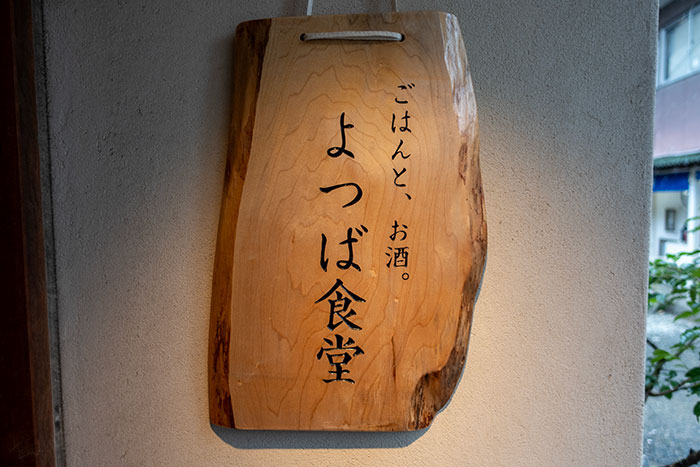 ごはんと、お酒。
よつば食堂